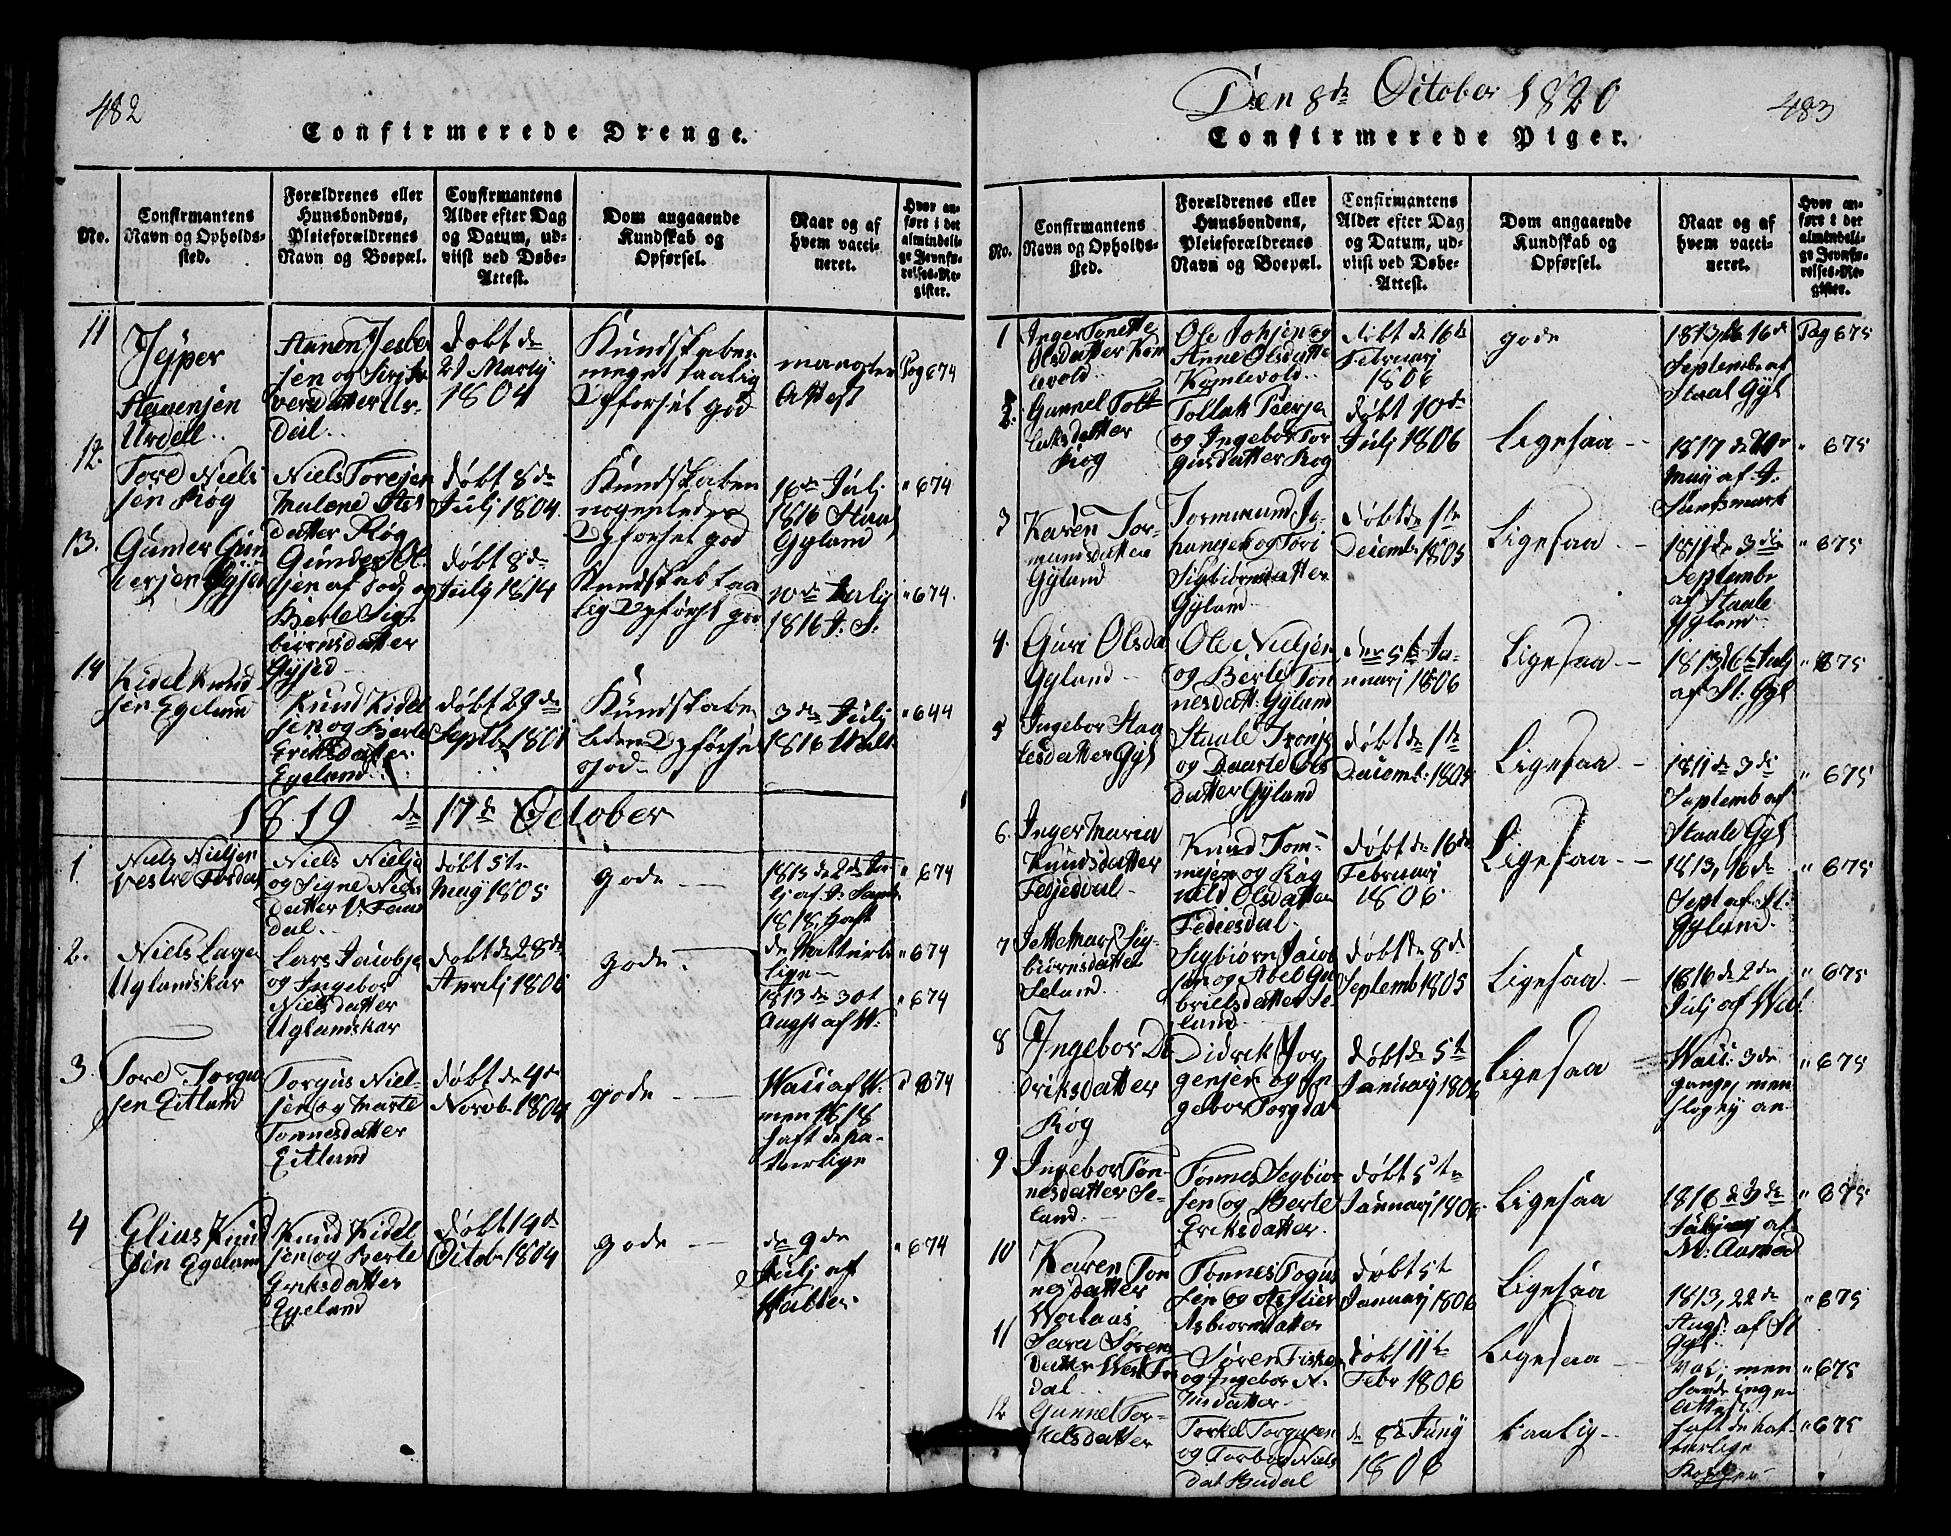 482
Confirmerede Drenge.
No.
Confirmantens
Navn og Opholds-
sted.
Forældrenes eller
Huusbondens,
Pleieforældrenes
Navn og Boepæl.
Confirmantens
Alder efter Dag
og Datum, ud-
viist ved Døbe-
Attest.
Dom angaaende
Kundskab og
Opførsel.
Naar og af
hvem vacci-
neret.
Hvor an-
ført i det
almindeli-
ge Jevnfø-
relses-Re-
gister.
11
Jesper
Aanensen
Urdell..
Aanen Jesper
sen og Siri
Dal..
døbt de
21 Martj
1804
Kundskaben
meget taalig
Opførsel god
Attest
Pag 674
12.
Tore Niels
sen Røg
Niels Toresen
Malene
datter Røg
døbt 8de
Julj 1804
Kundskaben
nogenledes
Opførsel god
16de Julj
1816 Staal
Gyland
" 674
13.
Gunder Gun
dersen
Gunder Ol
sen af død og
Berte Sig-
biørnsdatter
døbt 8de
July 1814
Kundskab taa
lig Opførsl god
10de July
1816 J: S:
" 674.
14
Kidel Knud
sen Egeland
Knud Kidel
sen og Berte
Eriksdatter
Egeland..
døbt 29de
Septbr 1801
Kundskabe
liden Opførsel
god
3de Julj
1816
" 644
1819 de 17de October
1
Niels Nielsen
Vestre
Niels Niels
og Signe Niels
datter V:
dal..
døbt 5te
May 1805
gode
1815 de 2de Ju
lj af J:
1818 haft
" 674
2.
Niels Larsen
Uglandskar
Lars Jacobse
og Ingebor
Nielsdatter
Uglandskar
døbt de 28de
Aprilj 1805
gode.
de Natturli
lige
1813 de 30t
Augst af W.
" 674
" 674
3.
Tore Torgus
sen Eitland
Torgus Niel-
sen og Marte
Tønnesdatter
Eitland
døbt de 4de
Novb. 1804
gode
Vacc af W.
men 1818
haft de na-
turlige
674
4
Elias Knud
sen Egeland
Knud Kidel
sen og Berte
Eriksdatter
Egeland
døbt 14de
Octob 1804
gode
de 9de
Julj af
Walter.
" 674
Den 8de October 1820
483
Confirmerede Piger.
No.
Confirmantens
Navn og Opholds-
sted.
Forældrenes eller
Huusbondens,
Pleieforældrenes
Navn og Boepæl.
Confirmantens
Alder efter Dag
og Datum, ud-
viist ved Døbe-
Attest.
Dom angaaende
Kundskab og
Opførsel.
Naar og af
hvem vacci-
neret.
Hvor an-
ført i det
almindeli-
ge Jevnfø-
relses-Re-
gister.
1
Inger Tonette
Olsdatter Kom
levold.
Ole Johsen og
Anne Olsdatte
Komlevold..
døbt de 16de
Februarj
1806
gode
1813 de 16de
September af
Staal Gyl
Pag 675
2.
Gunnel Tol
laksdatter
Røg
Tollak Peerse
og Ingebor Tor
gusdatter Røg
døbt 10de
Julj 1806
Ligesaa
1817 de
May af J.
" 675
3
Karen Tor-
mundsdatter
Gyland
Tormund Jo-
hansen og Tori
Sigbiørnsdatter
Gyland
døbt de 1te
Decembr 1805
Ligesaa
1811 de 3die
Septembr
af Staale
Gyland
" 675
4.
Guri Olsda
Gyland
Ole Nielsen
og Berte Tøn
nesdatt: Gyland
den 5te Ja-
nuarj 1806
Ligesaa
1813 16de Julj
af St: Gyl
" 675
5
Ingebor Staa
lesdatter Gyl
Staale Tronse
og Daarte Ols
datter Gyland
døbt de 1te
Decemb: 1805
Ligesaa
1811 de 3de
Septemb af
Staale Gyl
" 675
6.
Inger Maria
Knudsdatter
Fesjesdal
Knud Tom-
mesen og Rag
nild Olsdatter
Fediesdal.
døbt de 16de
Februarj
1806.
Ligesaa
1813, 16de
Sept af St.
Gyland.
" 675
7
Jette Mar Sig-
biørnsdatter
Seland.
Sigbiørn Jacob
sen og Abel Ga
brielsdatter Se-
land
døbt de 8de
Septemb 1805
Ligesaa.
1816 de 2de
Julj af Wal.
" 675
8
Ingebor Di
driksdatter
Røg
Didrik Jor
gensen og In
gebor Torgdat
døbt de 5te
Januarj 1806
Ligesaa
Vacc: 3de
gange, men
slog ej an
" 675
9
Ingebor Tøn-
nesdatter Se-
land.
Tønnes Segbior
sen og Berte
Eriksdatter.
døbt 5te
Januarj 1806
Ligesaa
1816 de 3de
af
M: Aamod
" 675
10
Karen Tøn
nesdatter
Tønnes Togus
sen og
Asbiornsdatter
døbt 5te
Januarj 1806
Ligesaa
1813, 22de
Augs: af St
Gyl.
" 675
11
Sara Sørens
datter
dal
Søren
og Ingebor N.
døbt 11te
Febr 1806
Ligesaa
Vac; men
havde ingen
Attest.
" 675
12
Gunnel Tor-
kelsdatter
Torkel Torgusen
og Torbor Niels
dat Budal
de 8de Juny
1806
taalig
haft de nat-
turlige
Kopper
" 675